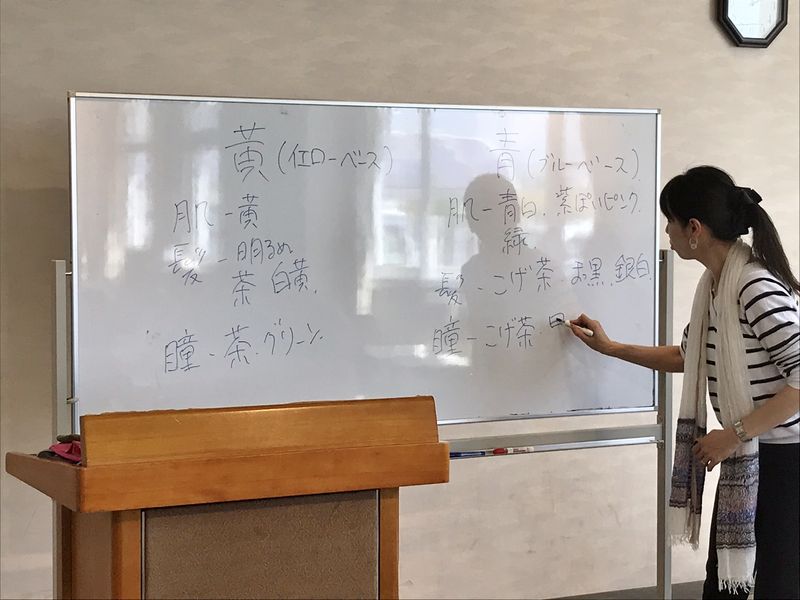 黄(イエローベース)
肌-黄
髪-明るめ
茶 白黄.
瞳-茶.グリーン.
青(ブルーベース)
肌-青白.紫ぽいピンク
緑.
髪-こげ茶.黒.銀白
瞳-こげ茶.